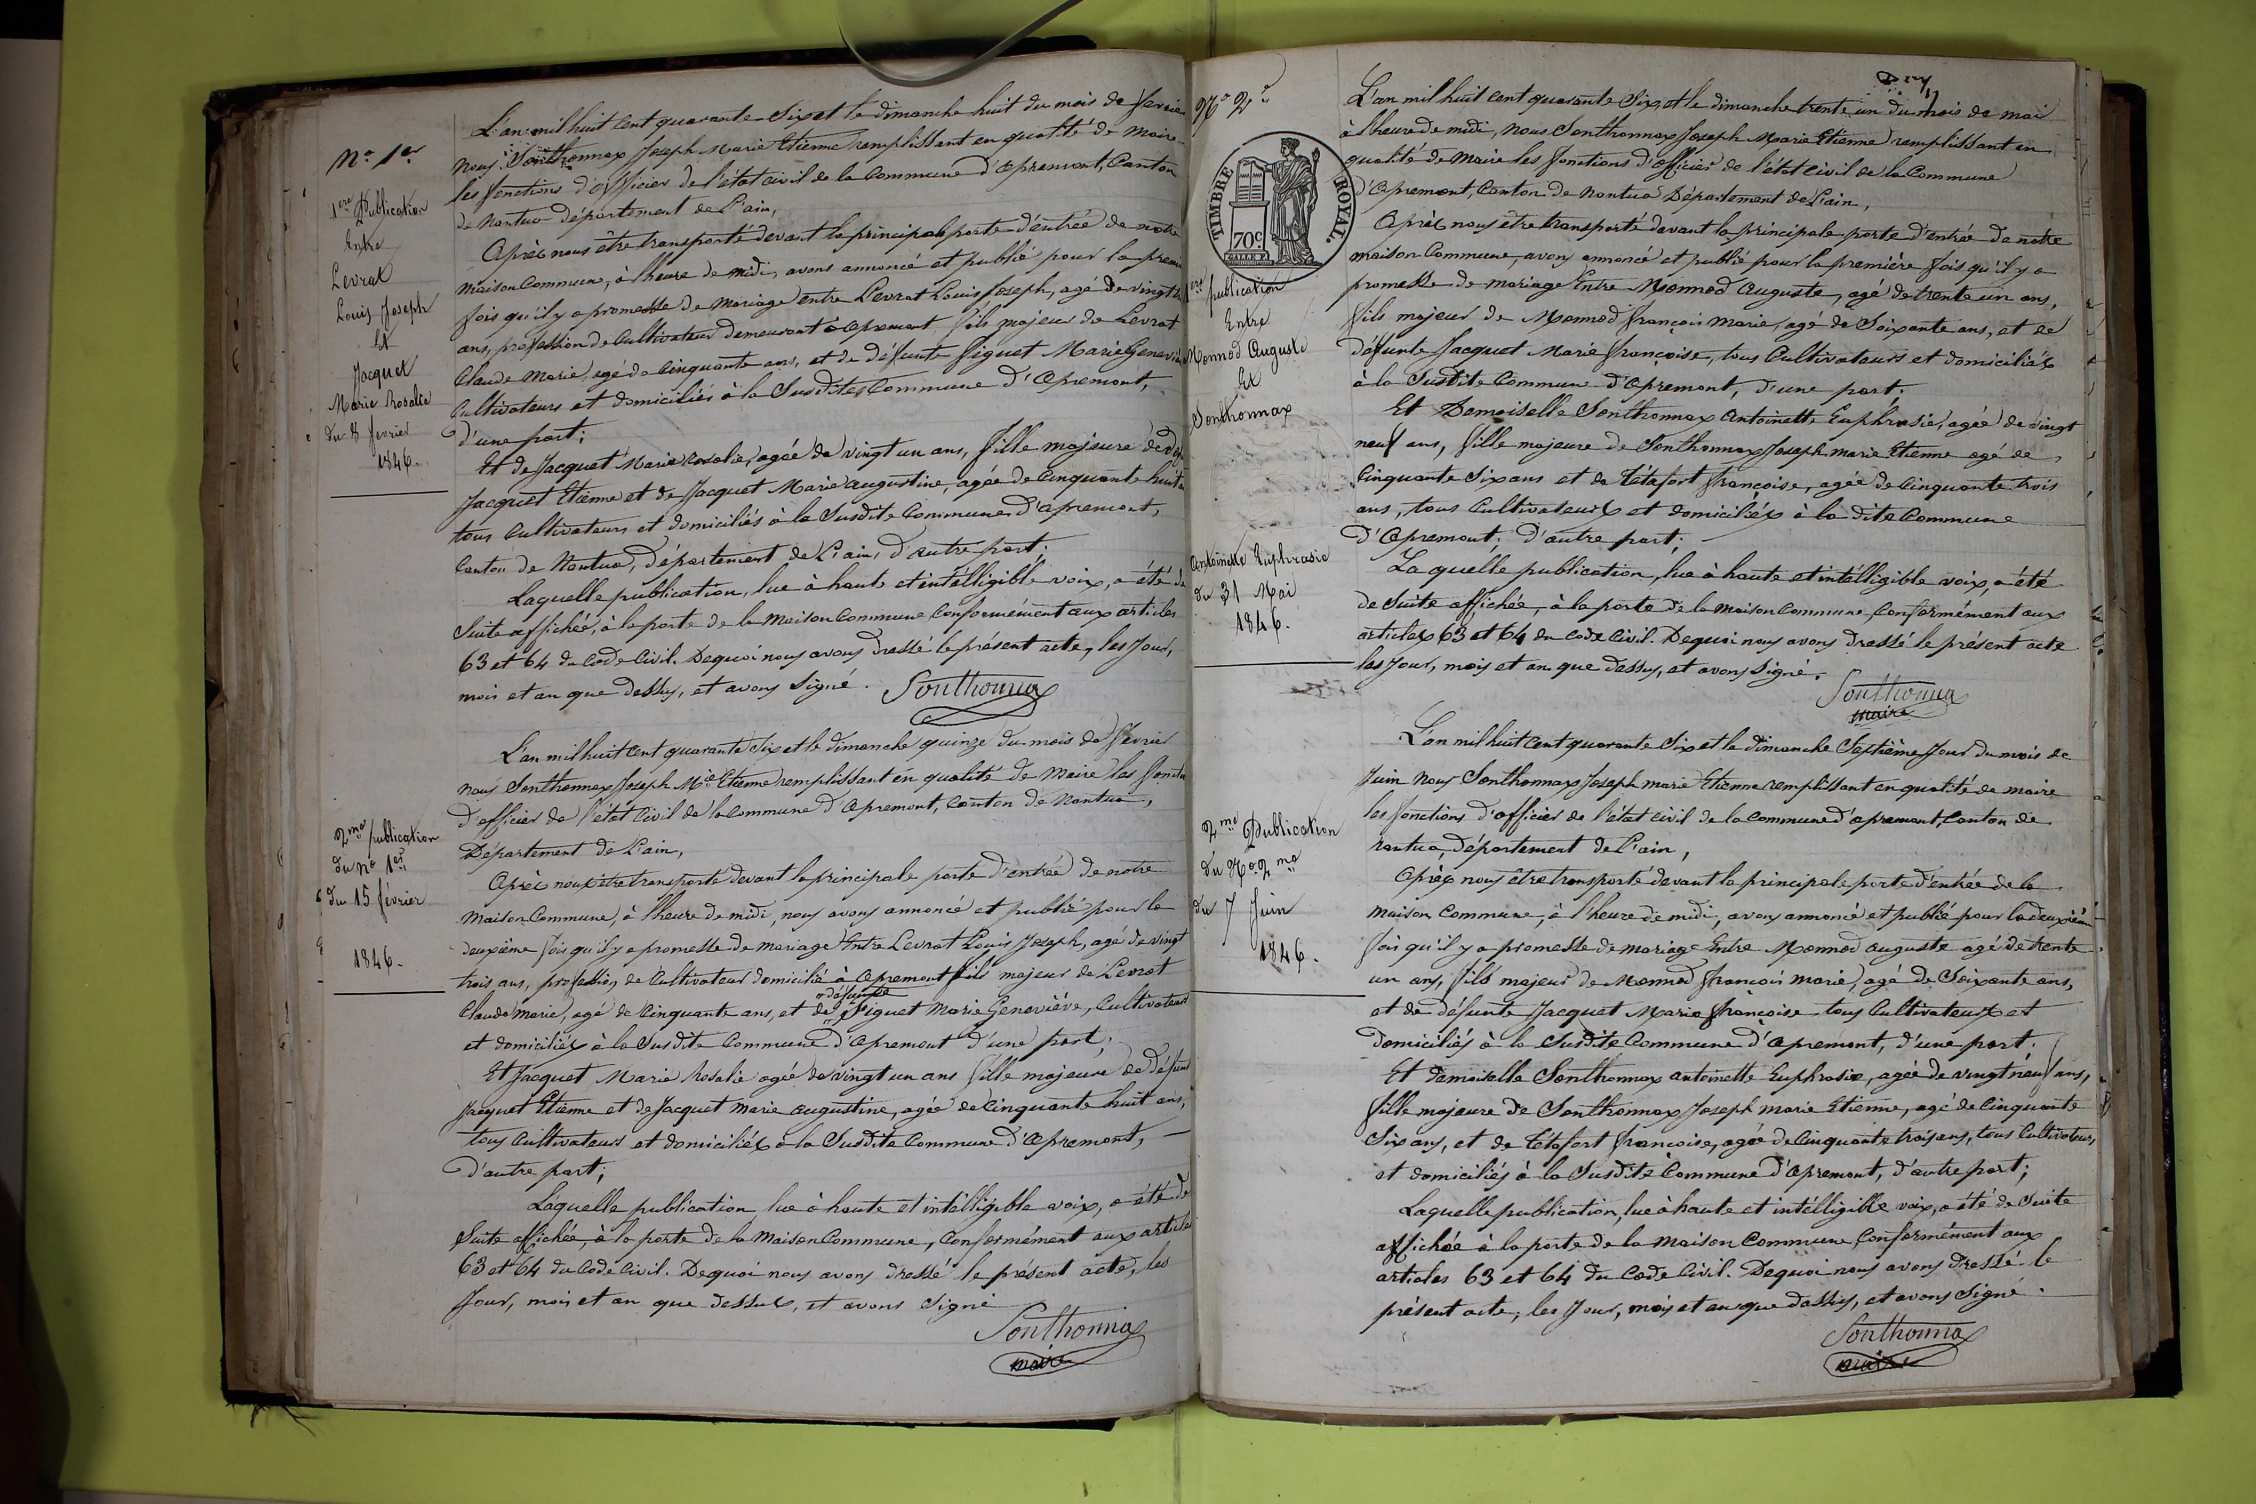 No 1er
1ere Publication
Entre
Levrat
Louis Joseph
Et
Jacquet
Marie Rosalie
du 8 fevrier
1846.
L'an mil huit cent quarante Six et le dimanche huit du mois de fevrier
nous Sonthonnax Joseph Marie Etienne remplissant en qualité de Maire
les fonctions d'officier de l'état civil de la Commune d'apremont, Canton
de Nantua département de L'ain,
Après nous être transporté devant la principale porte d'entrée de notre
maison Commune, à l'heure de midi, avons annoncé et publié pour la premi
fois qu'il y a promesse de mariage entre Levrat Louis Joseph, agé de vingt
ans, profession de Cultivateur demeurant à apremont fils majeur de Levrat
Claude Marie, agé de Cinquante ans, et de défunte figuet Marie Genevièv
Cultivateurs et domiciliés à la Susdites Commune d'apremont,
d'une part;
Et de Jacquet Marie Rosalie, agée de vingt un ans, fille majeure de
Jacquet Etienne et de Jacquet Marie augustine, agée de Cinquante huit
tous Cultivateurs et domiciliés à la Susdite Commune d'apremont,
Canton de Nantua, département de L'ain, d'autre part;
Laquelle publication, lue à haute et intélligible voix, a été de
Suite affichée, à la porte de la Maison Commune Conformément aux articles
63 et 64 du Code Civil. Dequoi nous avons dressé le présent acte, les Jour,
mois et an que dessus, et avons signé. Sonthonnax
2me publication
du no 1er
du 15 février
1846.
L'an mil huit cent quarante Six et le dimanche quinze du mois de fevrier
nous Sonthonnax Joseph Mie Etienne remplissant en qualité de Maire les fonctio
d'officier de l'état Civil de la Commune d'apremont, Canton de Nantua,
Département de L'ain,
Après nous être transporté devant la principale porte d'entrée de notre
maison Commune, à l'heure de midi, nous avons annoncé et publié pour la
deuxième fois qu'il y a promesse de mariage Entre Levrat Louis Joseph, agé de vingt
trois ans, profession de Cultivateur domicilié à apremont fils majeur de Levrat
défunte
Claude Marie, agé de Cinquante ans, et de figuet Marie Geneviève, Cultivateurs
et domiciliés à la Susdite Commune d'apremont d'une part;
Et Jacquet Marie Rosalie agée de vingt un ans fille majeure de défunt
Jacquet Etienne et de Jacquet Marie augustine, agée de Cinquante huit ans,
tous Cultivateurs et domiciliés à la Susdite Commune d'apremont,
d'autre part;
Laquelle publication, lue à haute et intélligible voix, a été de
Suite affichée, à la porte de la Maison Commune, Conformément aux articles
63 et 64 du Code Civil. Dequoi nous avons dressé le présent acte, les
Jour, mois et an que dessus, et avons signé
Sonthonnax
maire
No 2e
TIMBRE ROYAL.
70c
1ere publication
Entre
Monnod Auguste
Et
Sonthonnax
Antoinette Euphrasie
du 31 Mai
1846.
L'an mil huit cent quarante Six, et le dimanche trente un du mois de mai
à l'heure de midi, nous Sonthonnax Joseph Marie Etienne remplissant en
qualité de Maire les fonctions d'officier de l'état Civil de la Commune
d'Apremont, Canton de Nantua Département de L'ain,
Après nous être transporté devant la principale porte d'entrée de notre
maison Commune, avons annoncé et publié pour la première fois qu'il y a
promesse de mariage Entre Monnod Auguste, agé de trente un ans,
fils majeur de Monnod françois marie, agé de Soixante ans, et de
défunte Jacquet Marie françoise, tous Cultivateurs et domiciliés
à la Susdite Commune d'Apremont, d'une part;
Et Demoiselle Sonthonnax Antoinette Euphrasie, agée de vingt
neuf ans, fille majeure de Sonthonnax Joseph marie Etienne agé de
Cinquante Six ans et de Tétafort françoise, agée de Cinquante trois
ans, tous Cultivateurs et domiciliés à la dite Commune
d'Apremont; d'autre part;
La quelle publication, lue à haute et intélligible voix, a été
de Suite affichée, à la porte de la maison Commune, Conformément aux
articles 63 et 64 du Code Civil. Dequoi nous avons dressé le présent acte
les Jour, mois et an que dessus, et avons signé.
Sonthonnax
maire
2me Publication
du No 2me
du 7 Juin
1846.
L'an mil huit cent quarante Six et le dimanche Septième Jour du mois de
Juin nous Sonthonnax Joseph marie Etienne remplissant en qualité de maire
les fonctions d'officier de l'état Civil de la Commune d'apremont, Canton de
nantua, département de L'ain,
Après nous être transporté devant la principale porte d'entrée de la
maison Commune, à l'heure de midi, avons annoncé et publié pour la deuxièm
fois qu'il y a promesse de mariage Entre Monnod auguste agé de trente
un ans, fils majeur de Monnod françois marie, agé de Soixante ans,
et de défunte Jacquet Marie françoise tous Cultivateurs et
domiciliés à la Susdite Commune d'Apremont, d'une part.
Et demoiselle Sonthonnax antoinette Euphrasie, agée de vingt neuf ans,
fille majeure de Sonthonnax Joseph marie Etienne, agé de Cinquante
Six ans, et de Tétafort françoise, agée de Cinquante trois ans, tous Cultivateurs,
et domiciliés à la Susdite Commune d'apremont, d'autre part;
Laquelle publication, lue à haute et intélligible voix, a été de Suite
affichée à la porte de la maison Commune, Conformément aux
articles 63 et 64 du Code Civil. Dequoi nous avons dressé le
présent acte, les Jour, mois et an que dessus, et avons signé.
Sonthonnax
maire